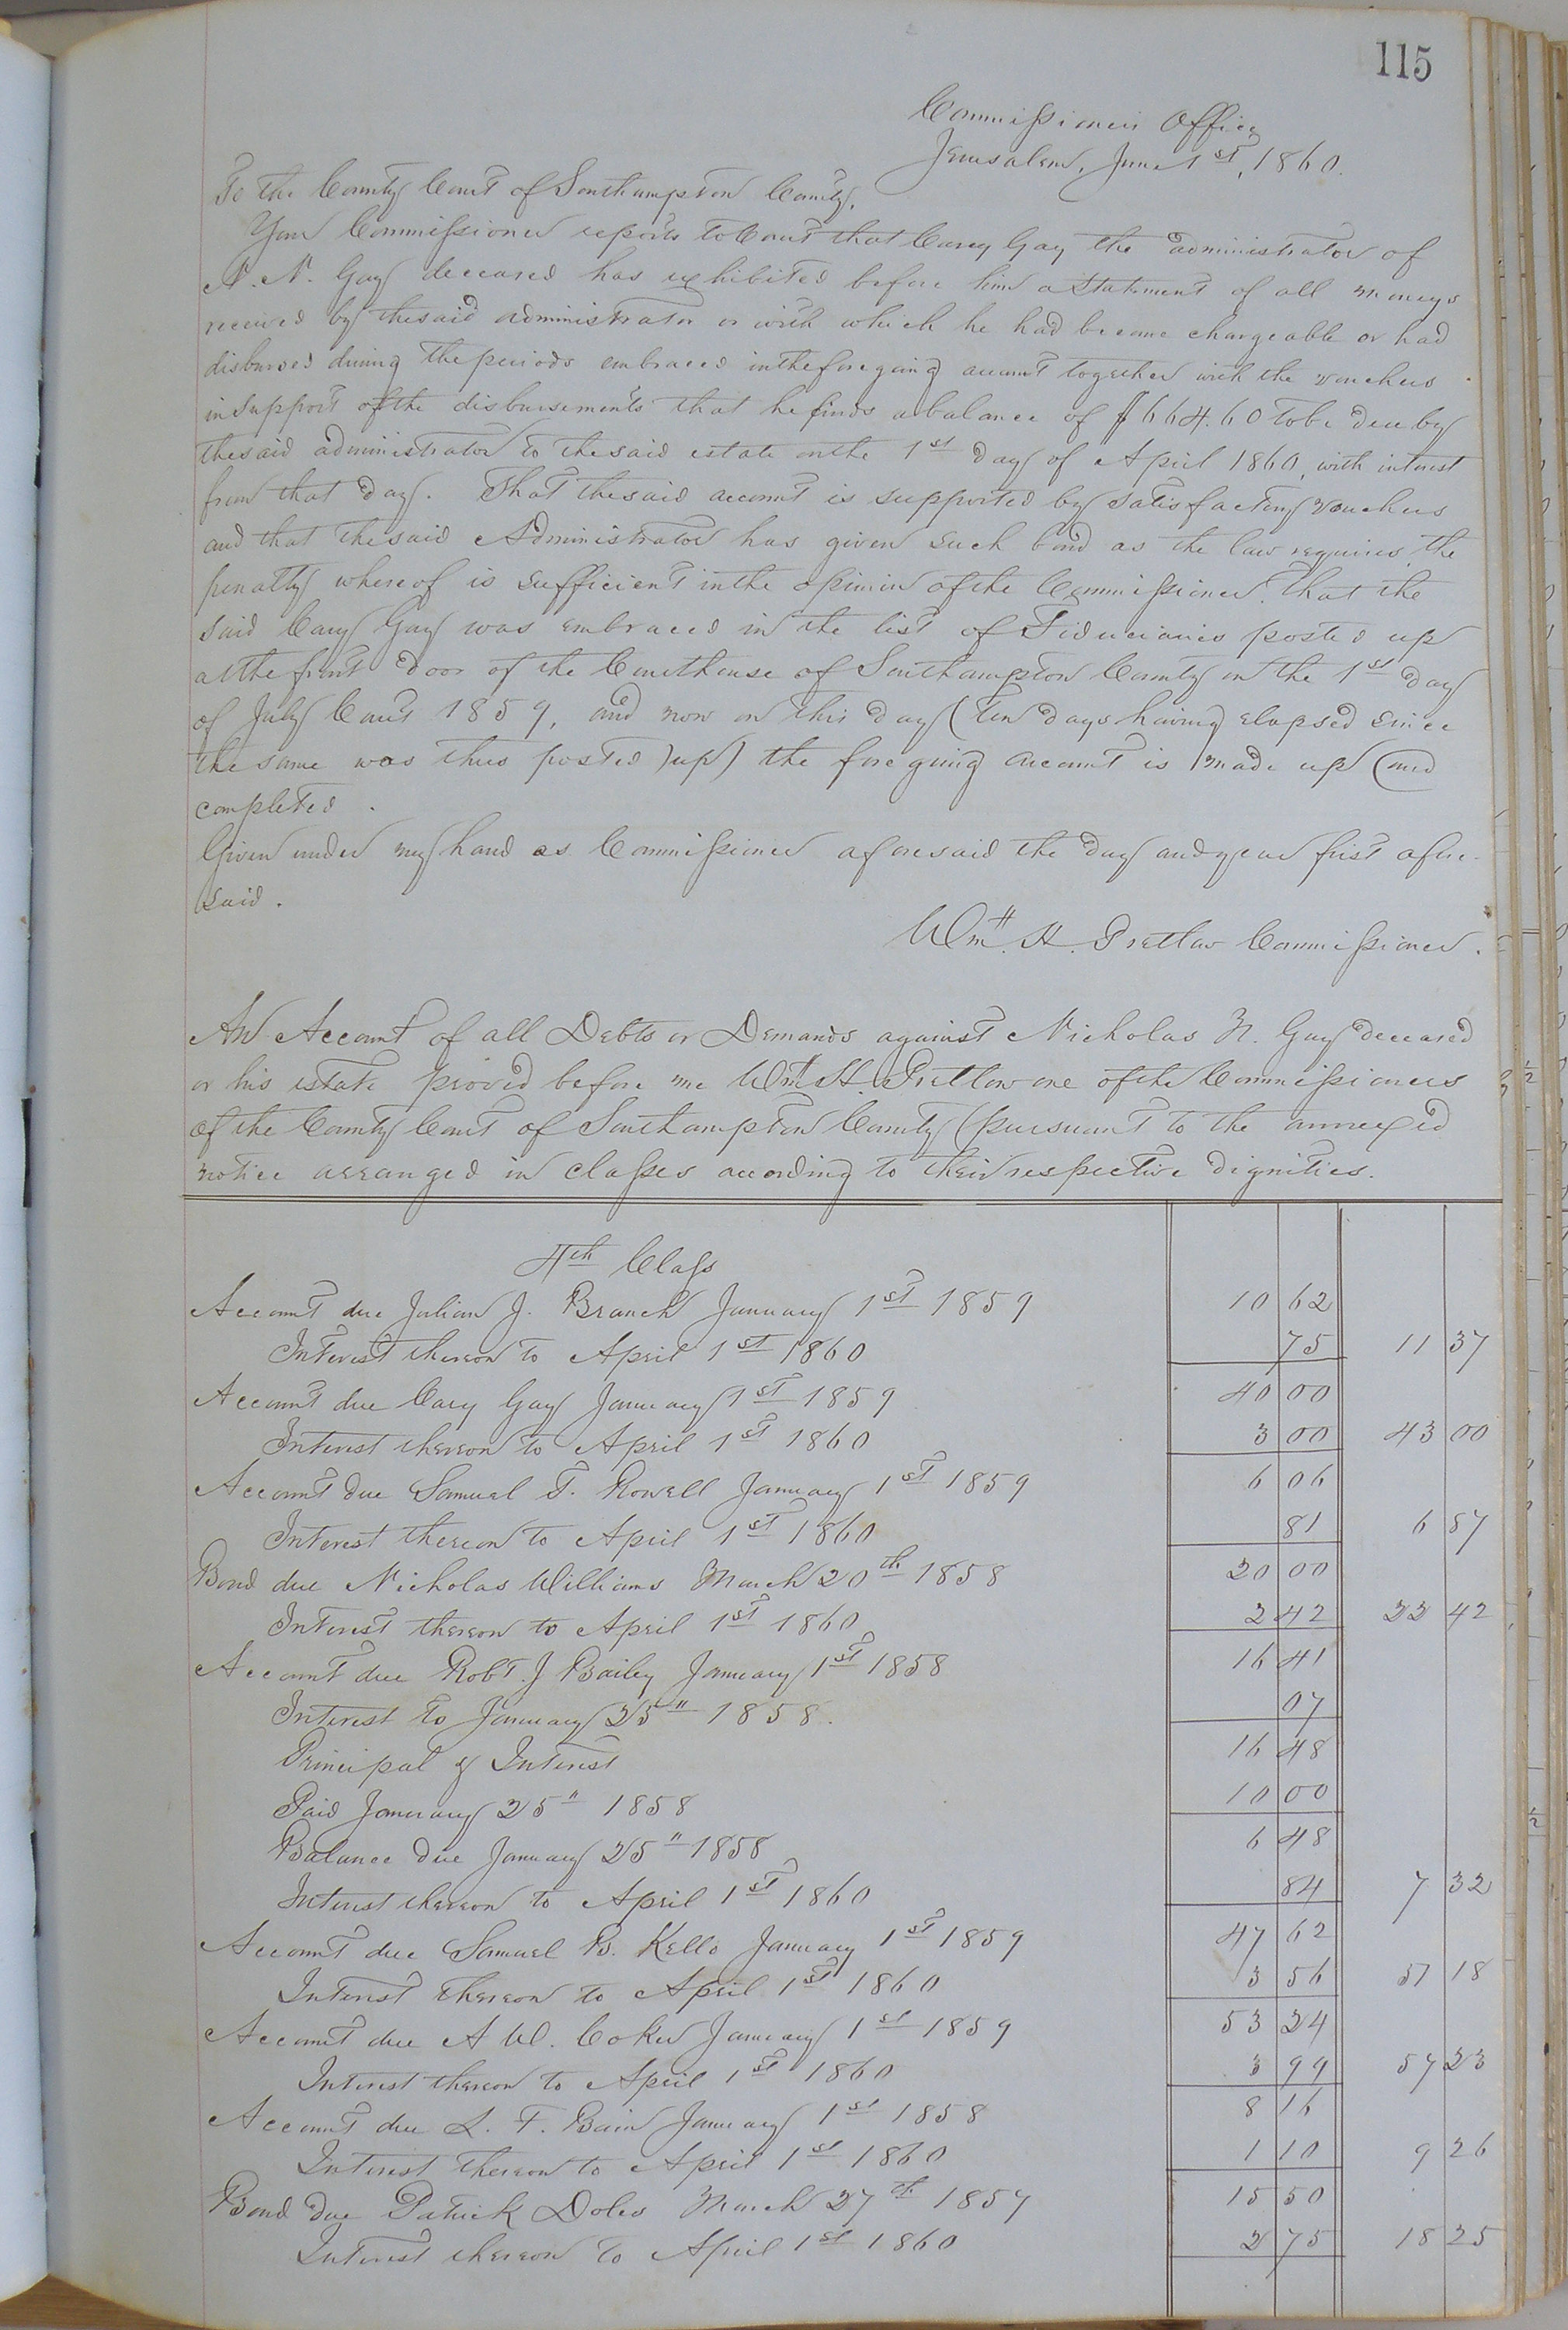 115
Commissioners Office
Jerusalem, June 1st, 1860.
To the County Court of Southampton County,
Your Commissioner reports to Court that Carey Gay the administrator of
N. N. Gay deceased has exhibited before him a Statement of all moneys
received by the said administrator or with which he had become chargeable or had
disbursed during the periods embraced in the foregoing account together with the vouchers
in support of the disbursements that he finds a balance of $664.60 to be due by
the said administrator to the said estate on the 1st day of April 1860, with interest
from that day. That the said account is supported by satisfactory vouchers
and that the said Administrator has given such bond as the law requires, the
penalty whereof is sufficient in the opinion of the Commissioner. That the
said Cary Gay was embraced in the list of Fiduciaries posted up
at the front door of the Courthouse of Southampton County on the 1st day
of July Court 1859, and now on this day (ten days having elapsed since
the same was thus posted up) the foregoing account is made up and
completed.
Given under my hand as Commissioner aforesaid the day and year first afore-
said.
Wm. H. Pretlow Commissioner.
An Account of all Debts or Demands against Nicholas N. Gay deceased
or his estate proved before me Wm H. Pretlow one of the Commissioners
of the County Court of Southampton County (pursuant to the annexed
notice arranged in classes according to their respective dignities.
4th Class
Account due Julian J. Branch January 1st 1859 10 62
Interest thereon to April 1st 1860 75 11 37
Account due Cary Gay January 1st 1859 40 00
Interest thereon to April 1st 1860 3 00 43 00
Account due Samuel T. Rowell January 1st 1859 6 06
Interest thereon to April 1st 1860 81 6 87
Bond due Nicholas Williams March 20th 1858 20 00
Interest thereon to April 1st 1860 2 42 22 42
Account due Robt. J Bailey January 1st 1858 16 41
Interest to January 25" 1858. 07
Principal & Interest 16 48
Paid January 25" 1858 10 00
Balance due January 25" 1858 6 48
Interest thereon to April 1st 1860 84 7 32
Account due Samuel B. Kello January 1st 1859 47 62
Interest thereon to April 1st 1860 3 56 51 18
Account due A W. Coker January 1st 1859 53 24
Interest thereon to April 1st 1860 3 99 57 23
Account due L. F. Bain January 1st 1858 8 16
Interest thereon to April 1st 1860 1 10 9 26
Bond due Patrick Doles March 27th 1857 15 50
Interest thereon to April 1st 1860 2 75 18 25